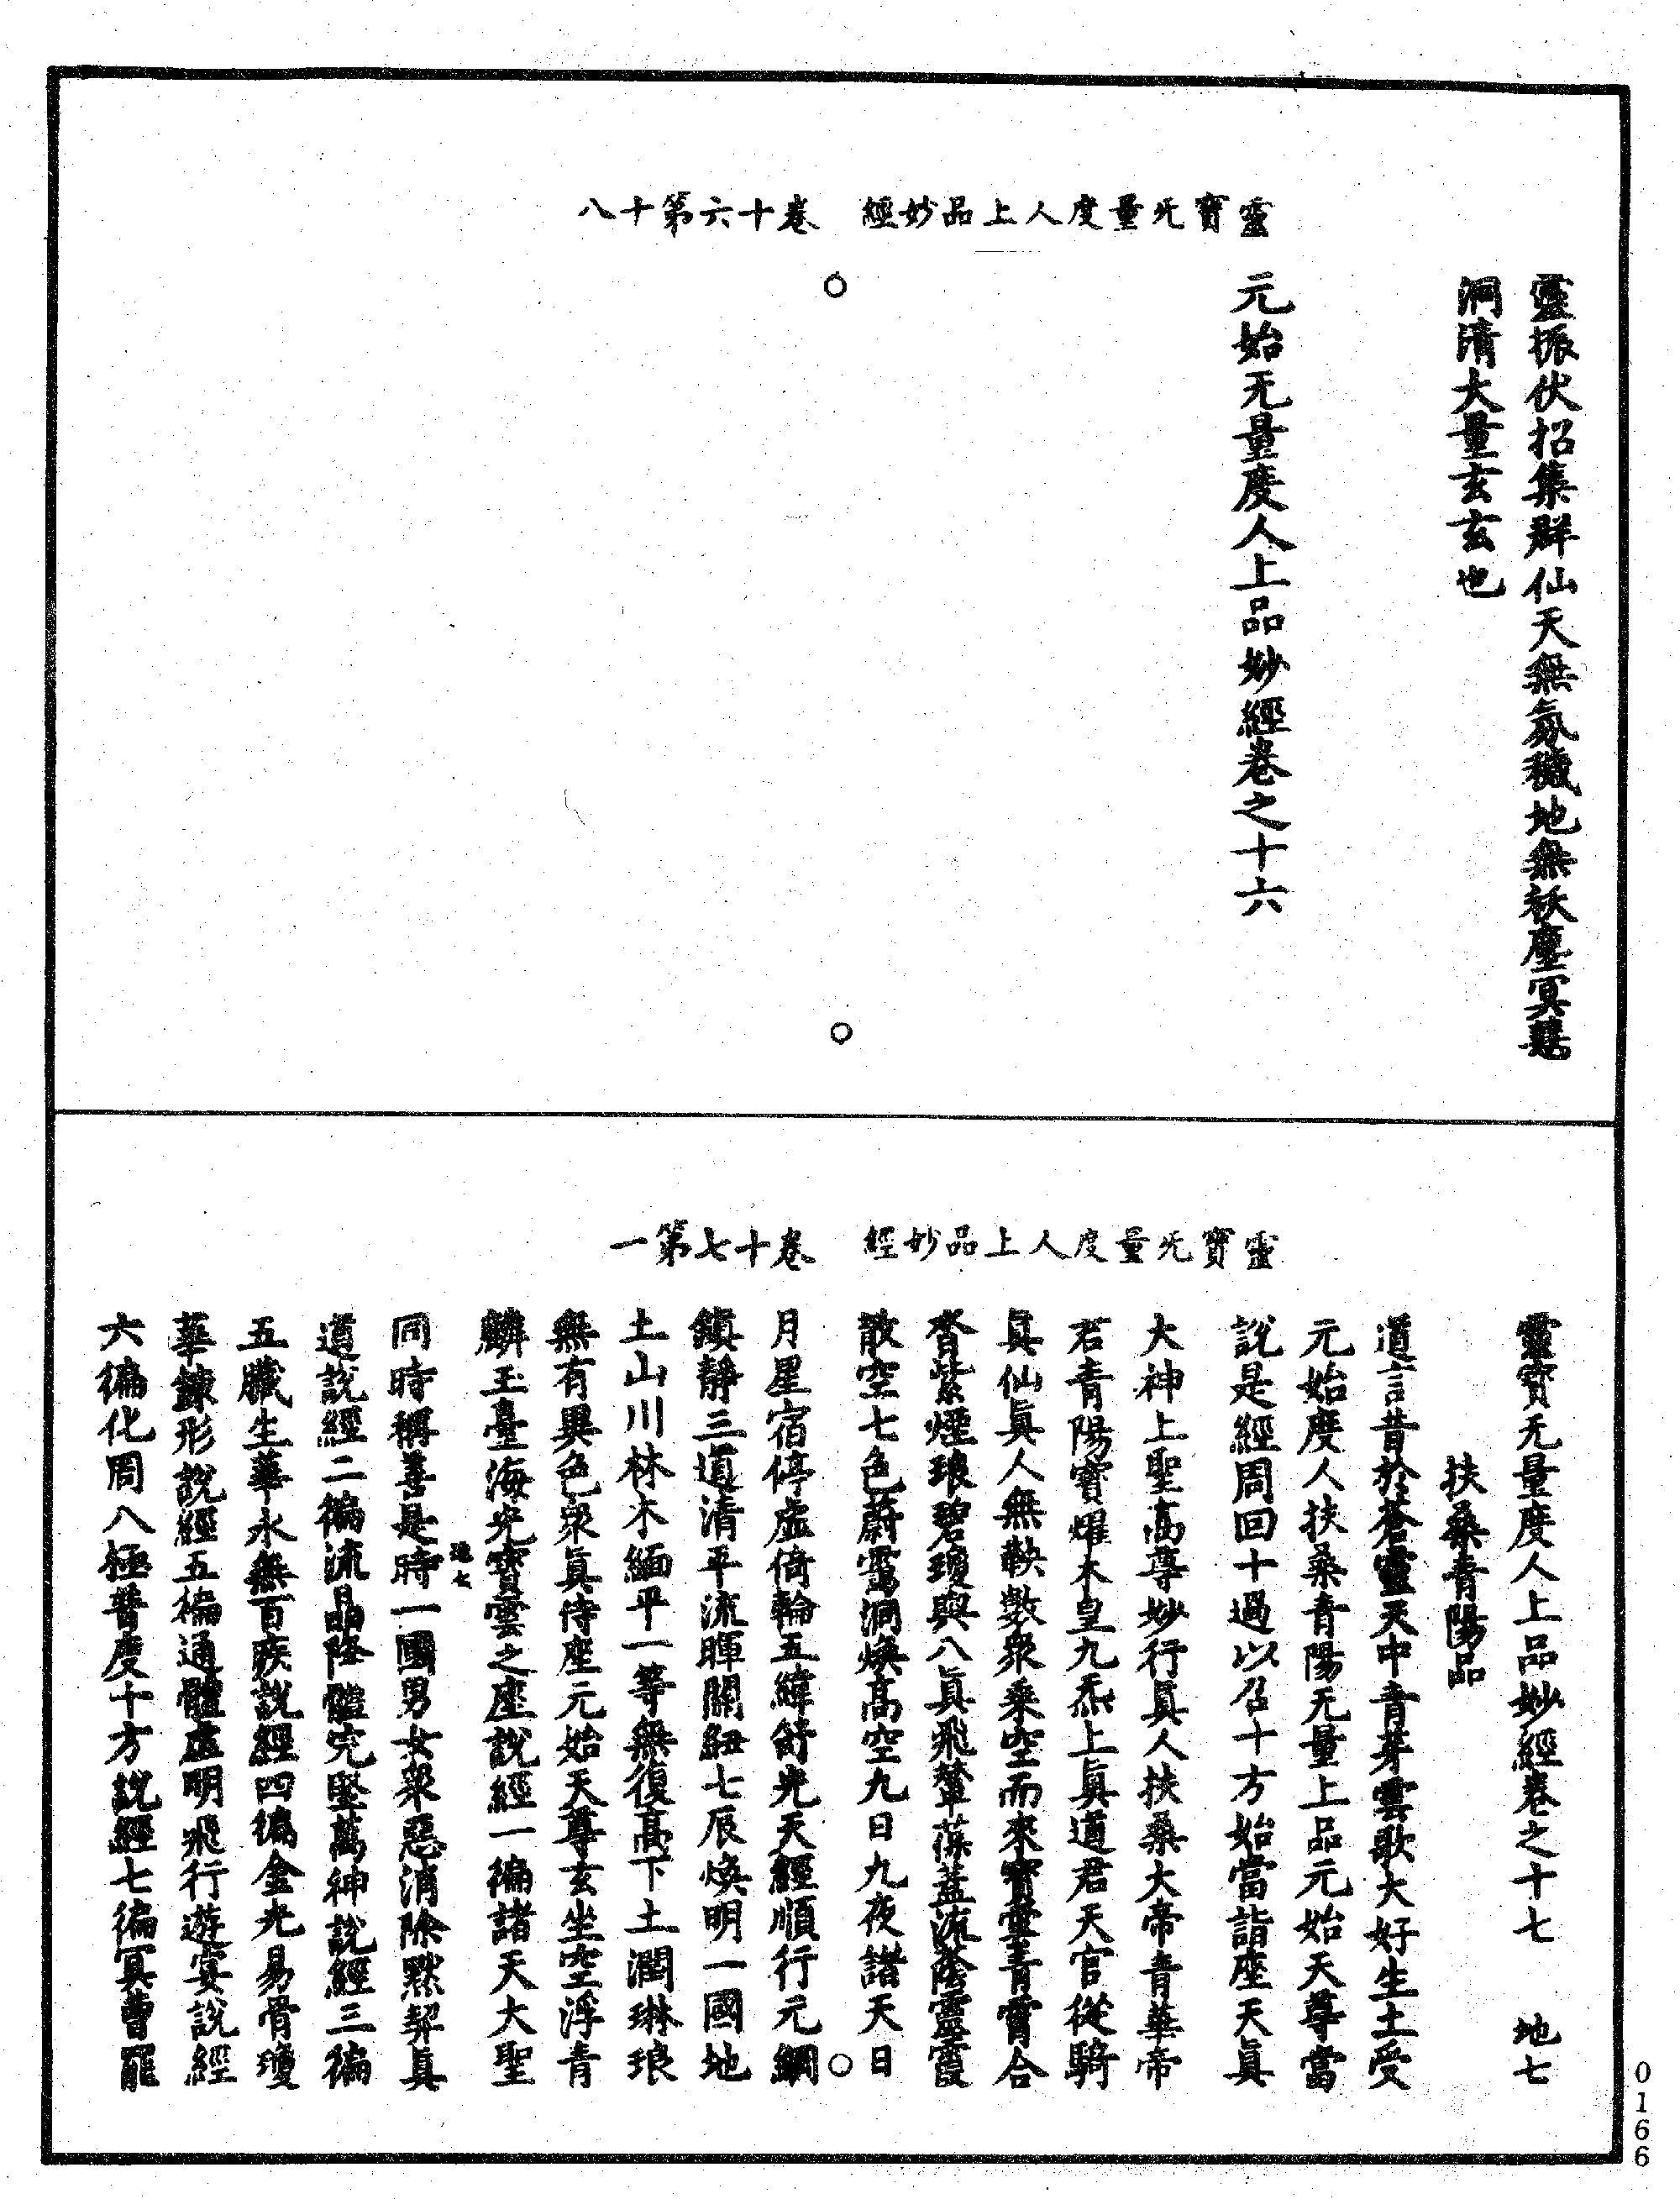 靈寶无量度人上品妙經　卷十六第十八
靈振伏招集群仙天無氛穢地無祅塵冥慧
洞清大量玄玄也
元始无量度人上品妙經卷之十六
靈寶无量度人上品妙經　卷十七第一
靈寶无量度人上品妙經卷之十七　地七
扶桑青陽品
道言昔於蒼靈天中青芽雲歌大好生土受
元始度人扶桑青陽无量上品元始天尊當
說是經周回十過以召十方始當詣座天真
大神上聖高尊妙行真人扶桑大帝青華帝
君青陽寶燿木皇九炁上真道君天官從騎
真仙真人無鞅數眾乘空而來寶臺青霄合
沓紫煙琅碧瓊輿八真飛輦葆蓋流蔭靈霞
散空七色蔚靄洞煥高空九日九夜諸天日
月星宿停虛倚輪五緯舒光天經順行元綱
鎮靜三道清平流暉關紐七辰煥明一國地
土山川林木緬平一等無復高下土潤琳琅
無有異色眾真侍座元始天尊玄坐空浮青
麟玉臺海光寶雲之座說經一徧諸天大聖
同時稱善是時一國男女眾惡消除默契真
道說經二徧流晶降體完堅萬神說經三徧
五臟生華永無百疾說經四徧金光易骨瓊
華鍊形說經五徧通體虛明飛行遊宴說經
六徧化周八極普度十方說經七徧冥曹罷
地七
0166